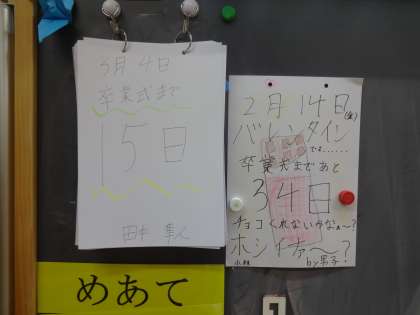 3月4日
卒業式まで
15日
田中 隼人
2月14日(金)
バレンタイン
でも……
卒業式まであと
34日
チョコくれないかなぁ〜?
by男子
小林
めあて
1